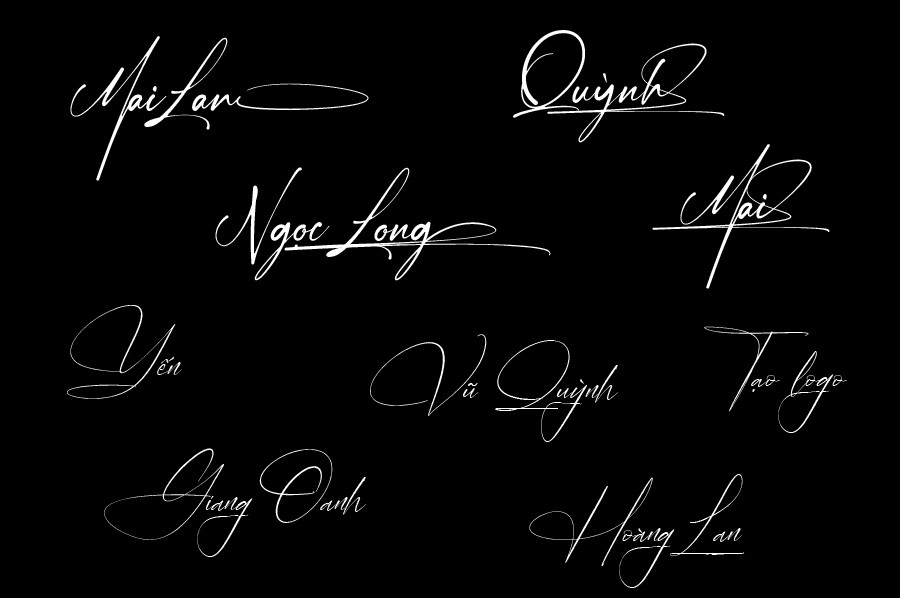 Mai Lan
Quỳnh
Ngọc Long
Mai
Yến
Vũ Quỳnh
Tạo logo
Giang Oanh
Hoàng Lan